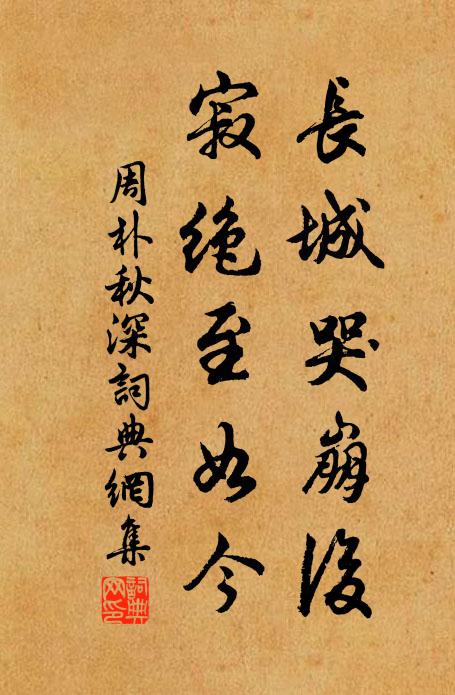 長城哭崩後
寂絶至如今
周朴秋深詞典網集
詞典網印